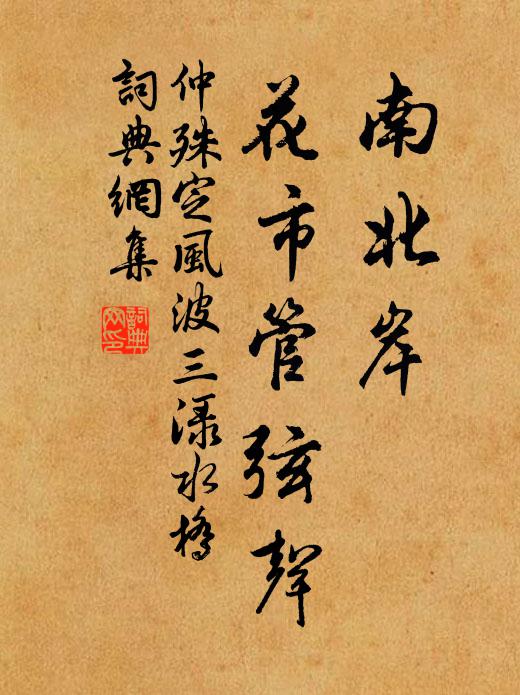 南北岸
花市管弦聲
仲殊定風波三渌水橋
詞典網集
詞典網印